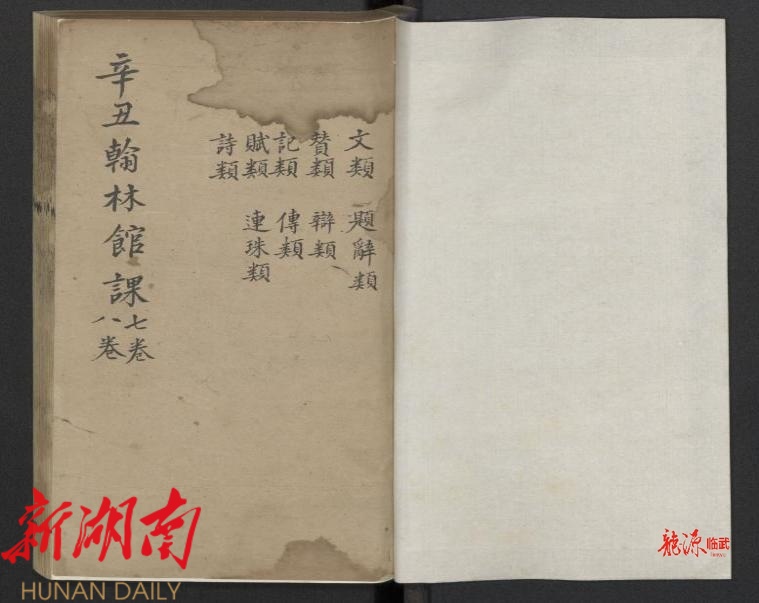 文類 題辭類
贊類 辯類
記類 傳類
賦類 連珠類
詩類
辛丑翰林館課七卷
八卷
新湖南
HUNAN DAILY
龍源临武